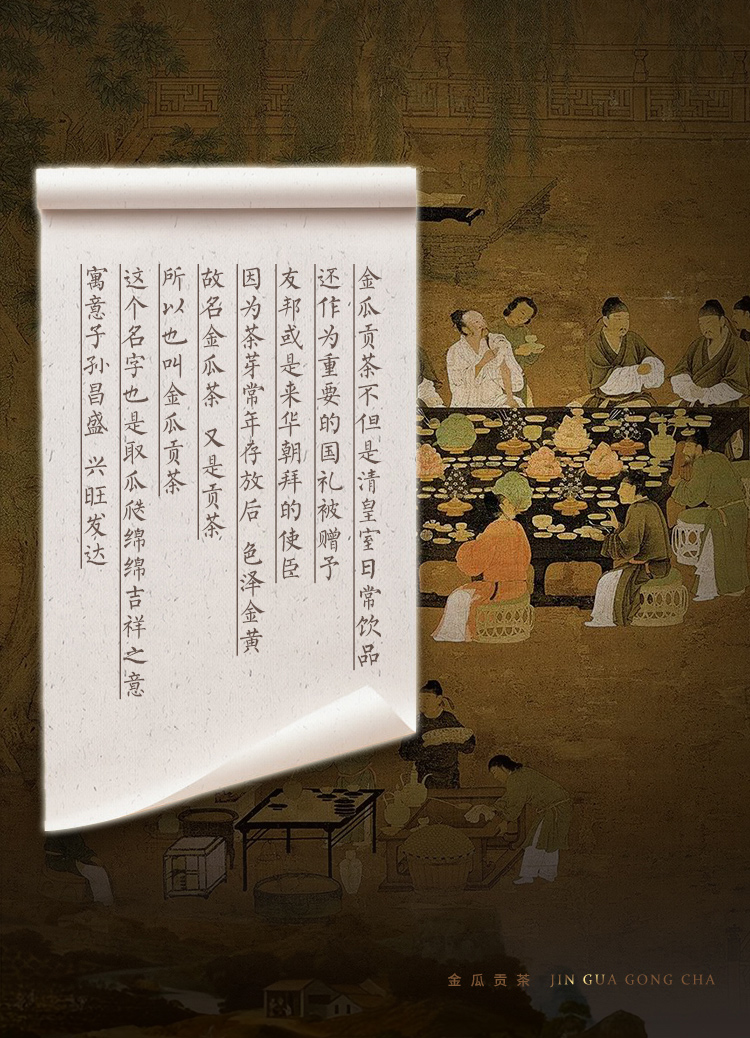 金瓜贡茶不但是清皇室日常饮品
还作为重要的国礼被赠予
友邦或是来华朝拜的使臣
因为茶芽常年存放后 色泽金黄
故名金瓜茶 又是贡茶
所以也叫金瓜贡茶
这个名字也是取瓜瓞绵绵吉祥之意
寓意子孙昌盛 兴旺发达
金瓜贡茶 JIN GUA GONG CHA